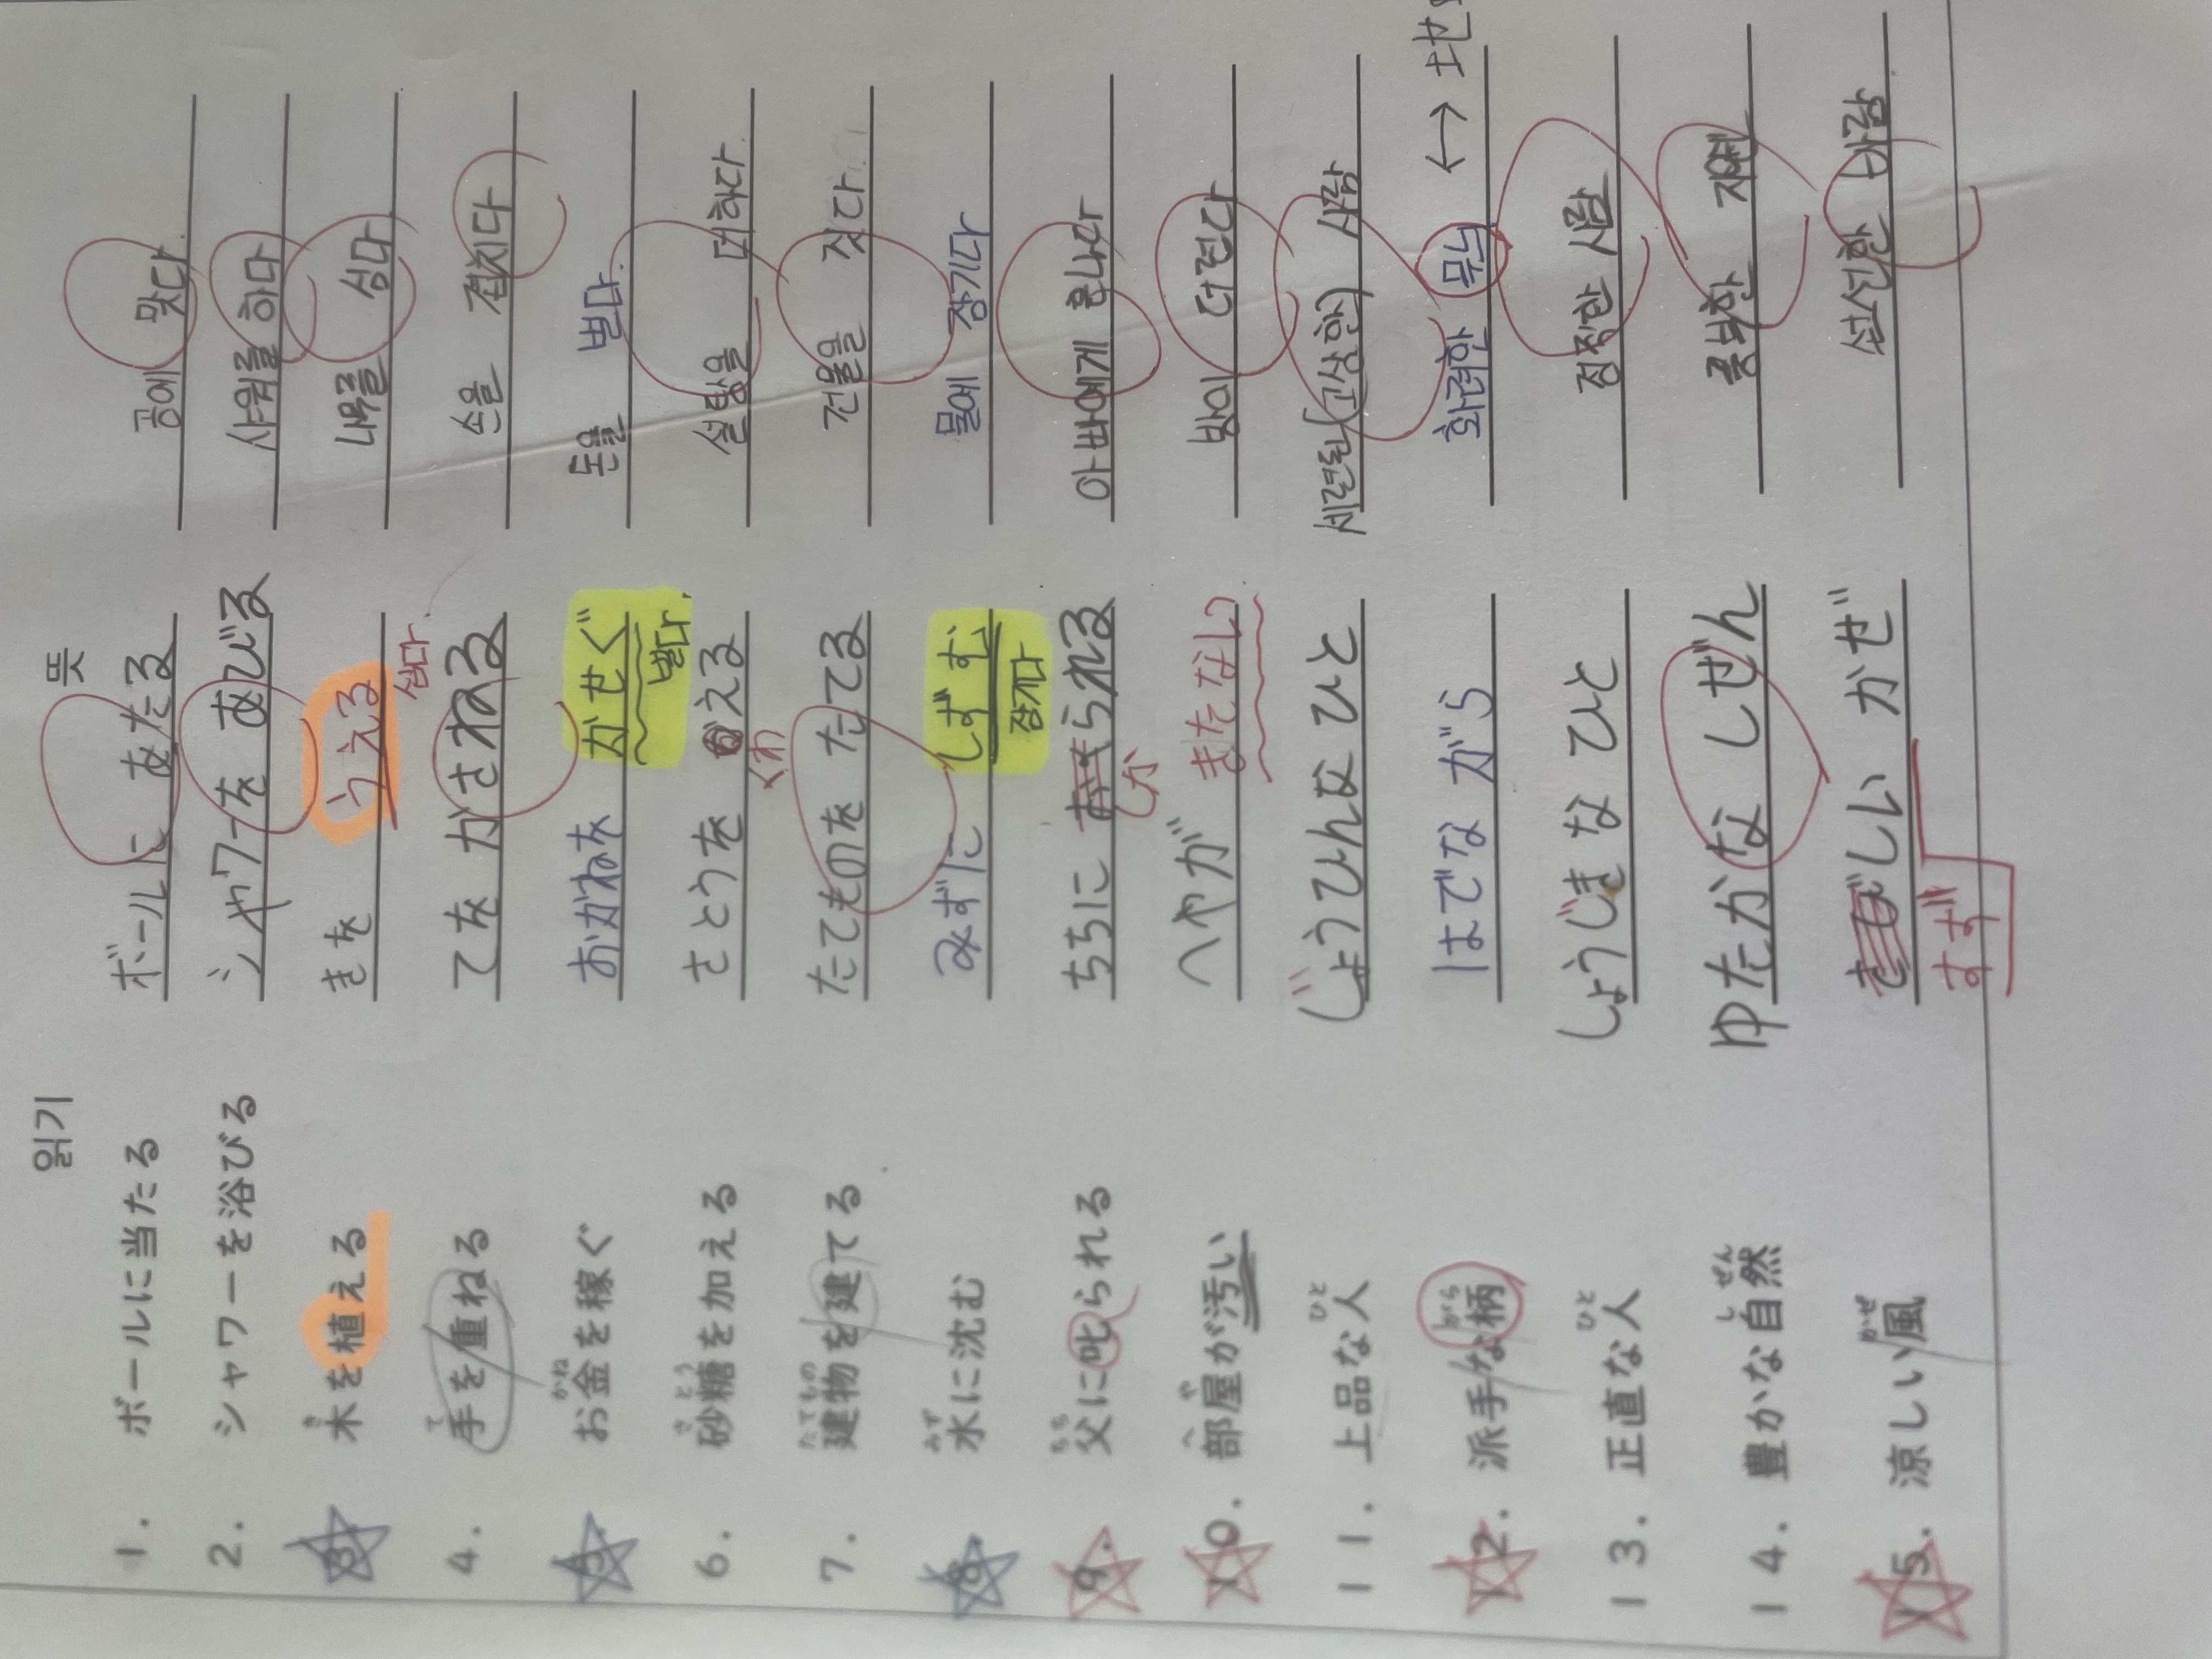 읽기 뜻
1. ボールに当たる ボールに あたる 공에 맞다.
2. シャワーを浴びる シャワーを あびる 샤워를 하다
3. 木を植える き きを うえる 심다.
4. 手を重ねる て てを かさねる 손을 겹치다
5. お金を稼ぐ かね おかねを かせぐ 벌다. 돈을 벌다.
6. 砂糖を加える さとう さとうを える くわ 설탕을 더하다.
7. 建物を建てる たてもの たてものを たてる 건물을 짓다.
8. 水に沈む みず みずに しずむ 잠기다 물에 잠기다
9. 父に叱られる ちち ちちに られる しか 아빠에게 혼나다
10. 部屋が汚い へや へやが きたない 방이 더럽다
11. 上品な人 ひと じょうひんな ひと 세련된(고상한) 사람
12. 派手な柄 がら はでな がら 화려한 무늬 ↔ 地
13. 正直な人 ひと しょうじきな ひと 정직한 사람
14. 豊かな自然 しぜん ゆたかな しぜん 풍부한
15. 涼しい風 かぜ しい かぜ すず 선선한 바람